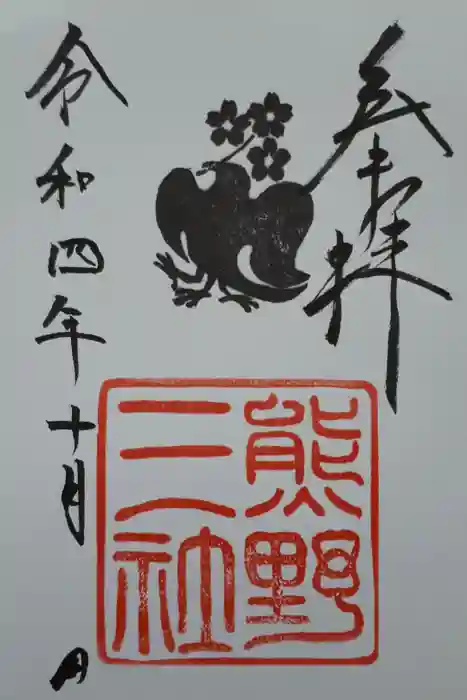 奉拝
熊野
三社
令和四年十月 日